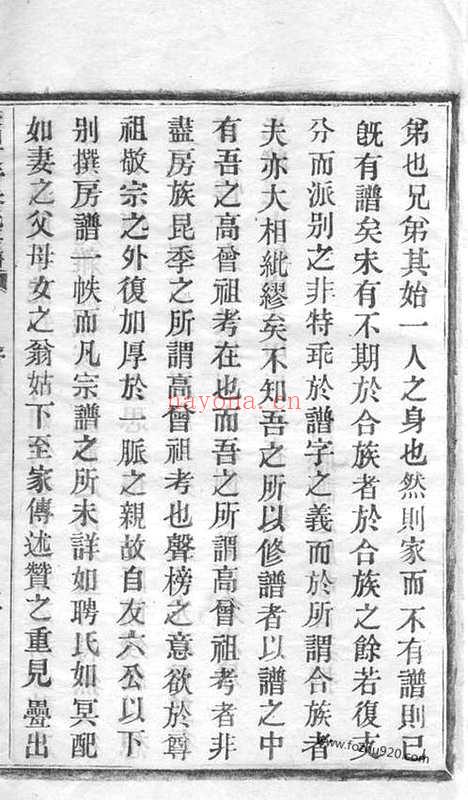 弟也兄弟其始一人之身也然則家而不有譜則已
旣有譜矣未有不期於合族者於合族之餘若復支
分而派別之非特乖於譜字之義而於所謂合族者
夫亦大相紕繆矣不知吾之所以修譜者以譜之中
有吾之高曾祖考在也而吾之所謂高曾祖考者非
盡房族昆季之所謂高曾祖考也聲榜之意欲於尊
祖敬宗之外復加厚於一脈之親故自友六公以下
別撰房譜一帙而凡宗譜之所未詳如聘氏如冥配
如妻之父母女之翁姑下至家傳述贊之重見疊出
nayona.cn
www.fozhu920.com